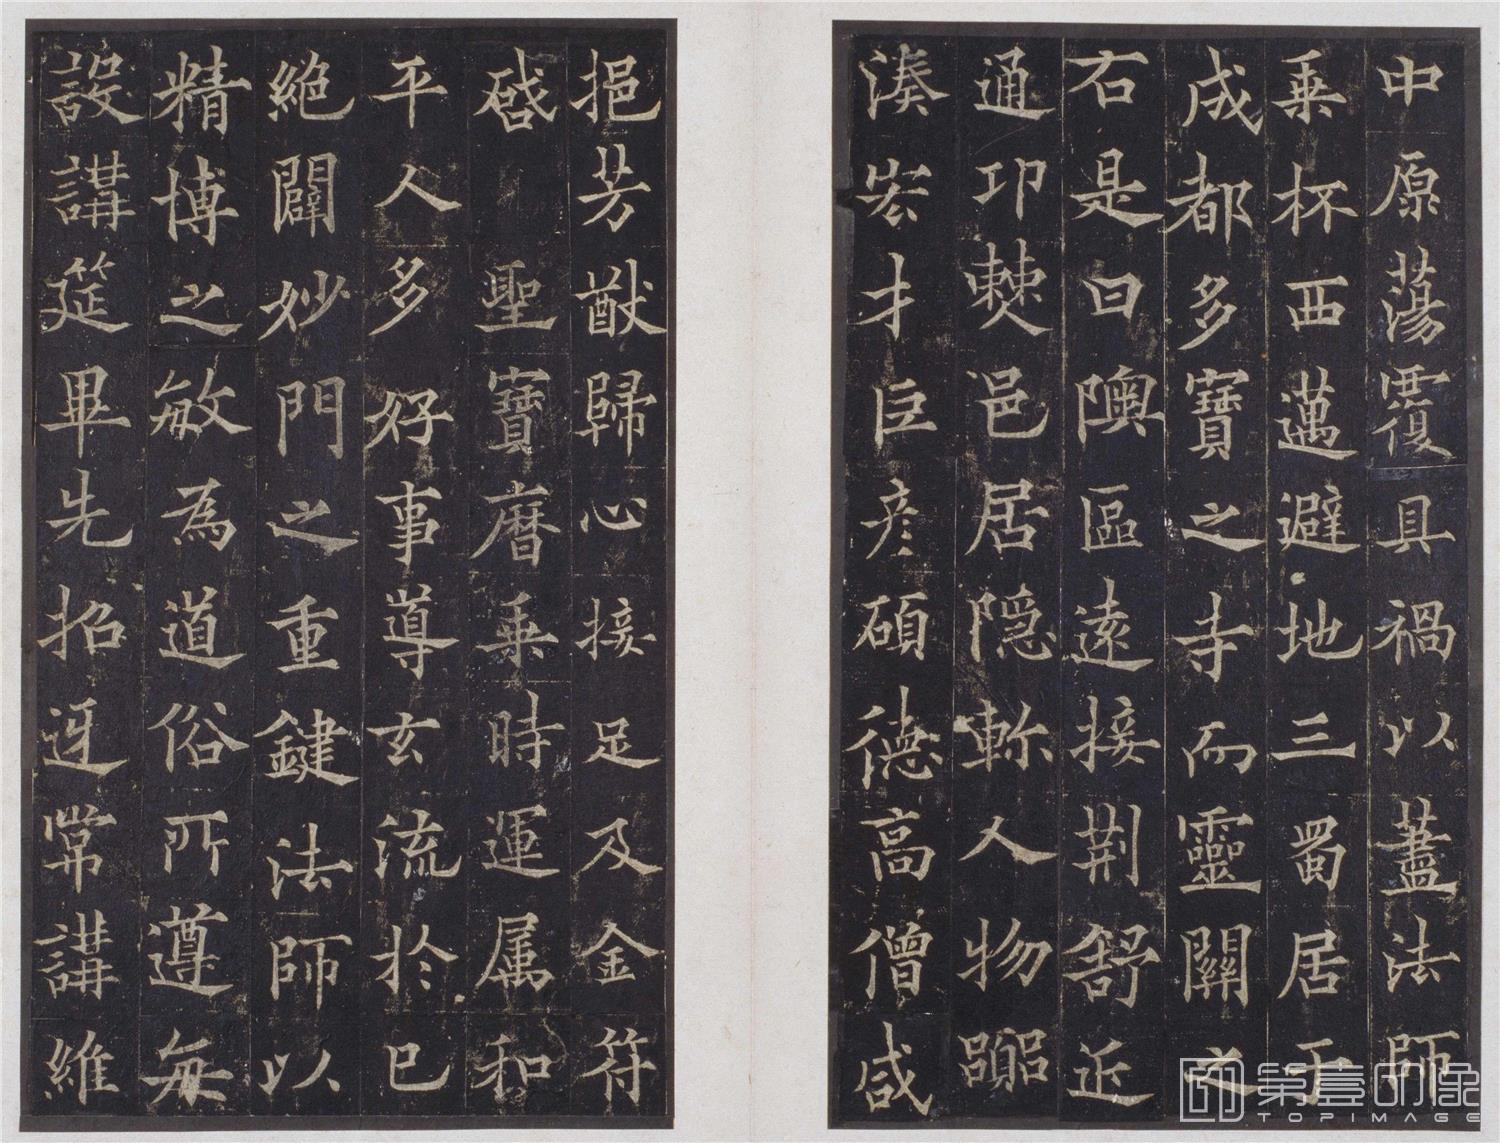 中原蕩覆具禍以藎法師
乗杯西邁避地三蜀居于
成都多寶之寺而靈關之
右是曰隩區遠接荆舒近
通邛僰邑居隱軫人物蹦
湊宏才巨彦碩德高僧咸
挹芳猷歸心接足及金符
啓聖寶曆乗時運属和
平人多好事導玄流於已
絶闢妙門之重鍵法師以
精博之敏為道俗所遵每
設講筵畢先招迓常講維
第壹印象
TOPIMAGE